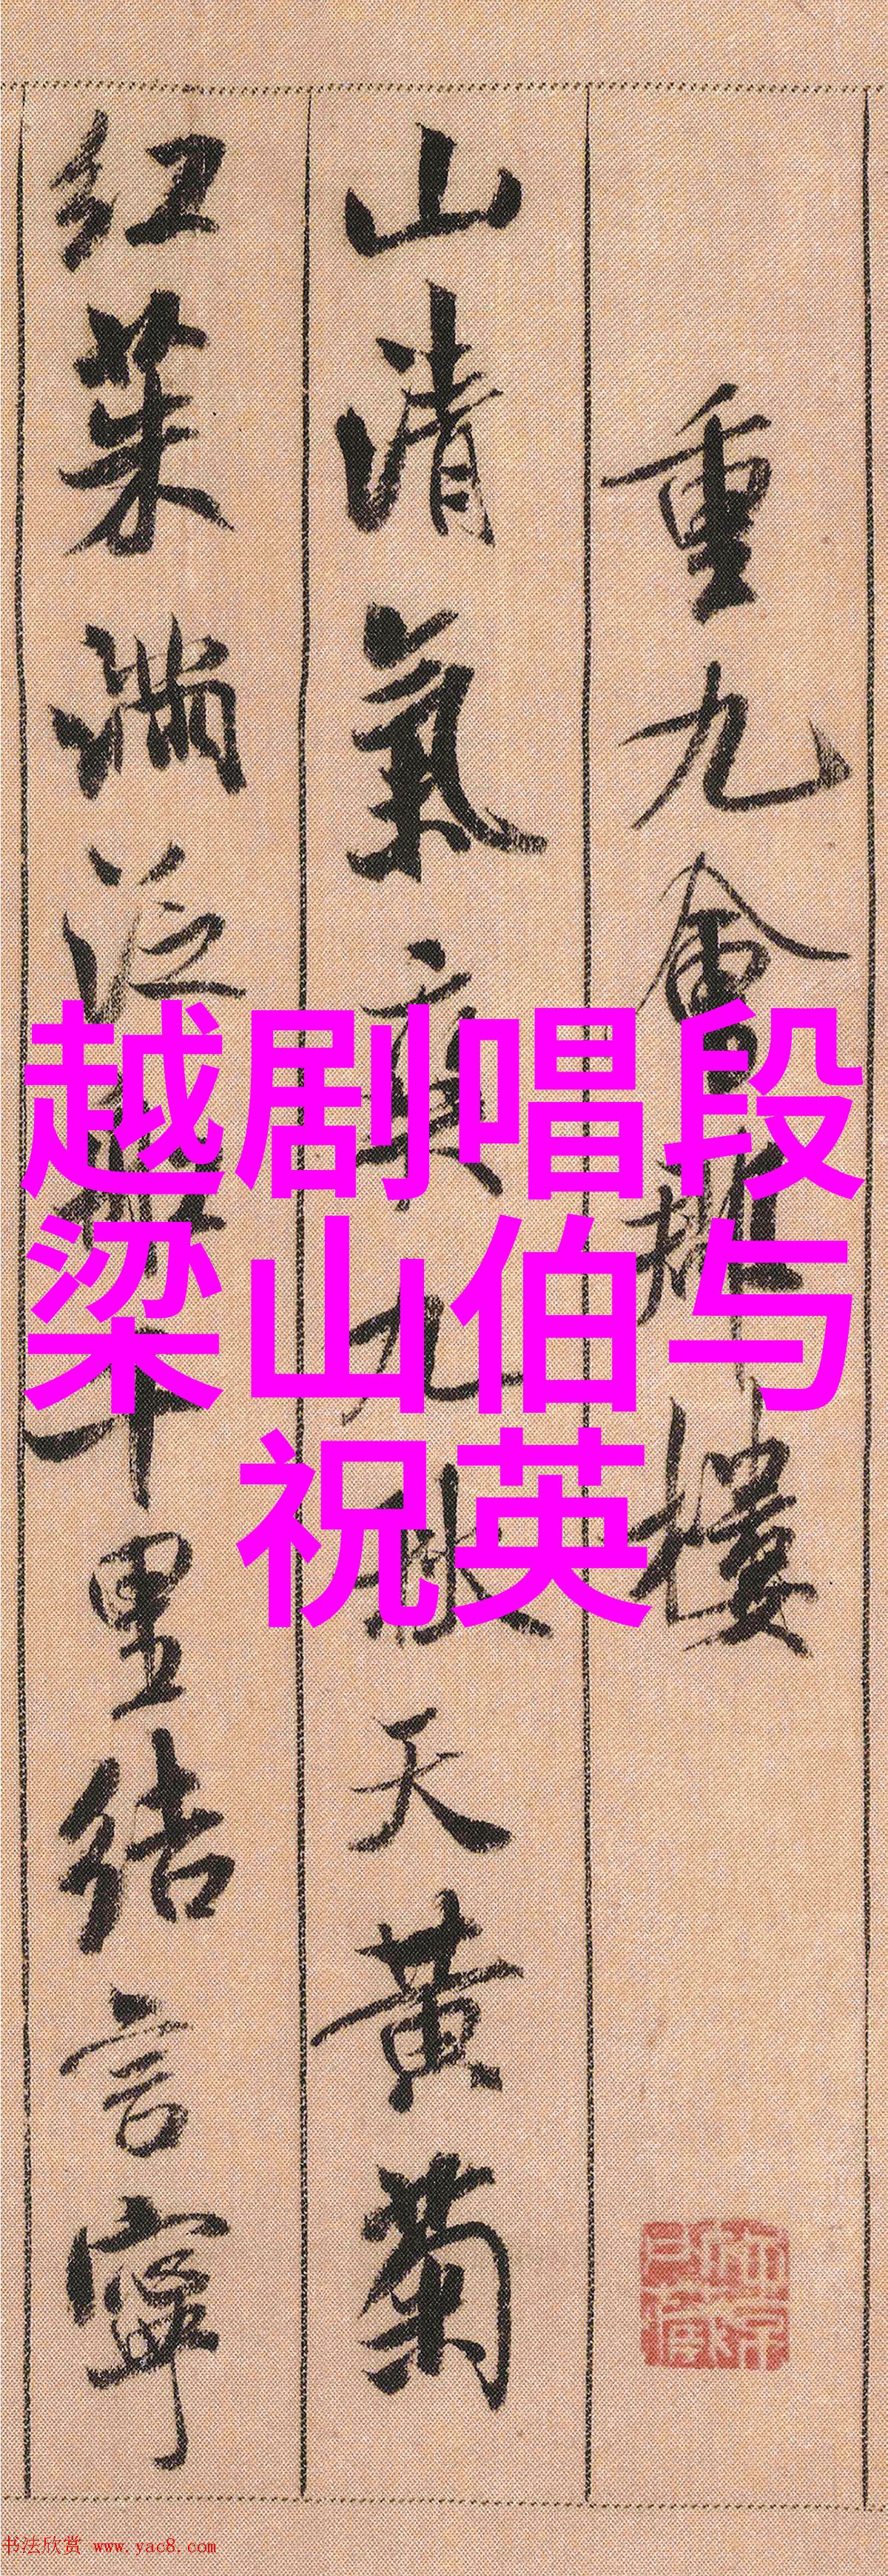 重九會郡樓
山清氣爽九秋天黃菊
紅茱滿泛千里結言寧
越剧唱段
梁山伯与
祝英
书法欣赏 www.yac8.com